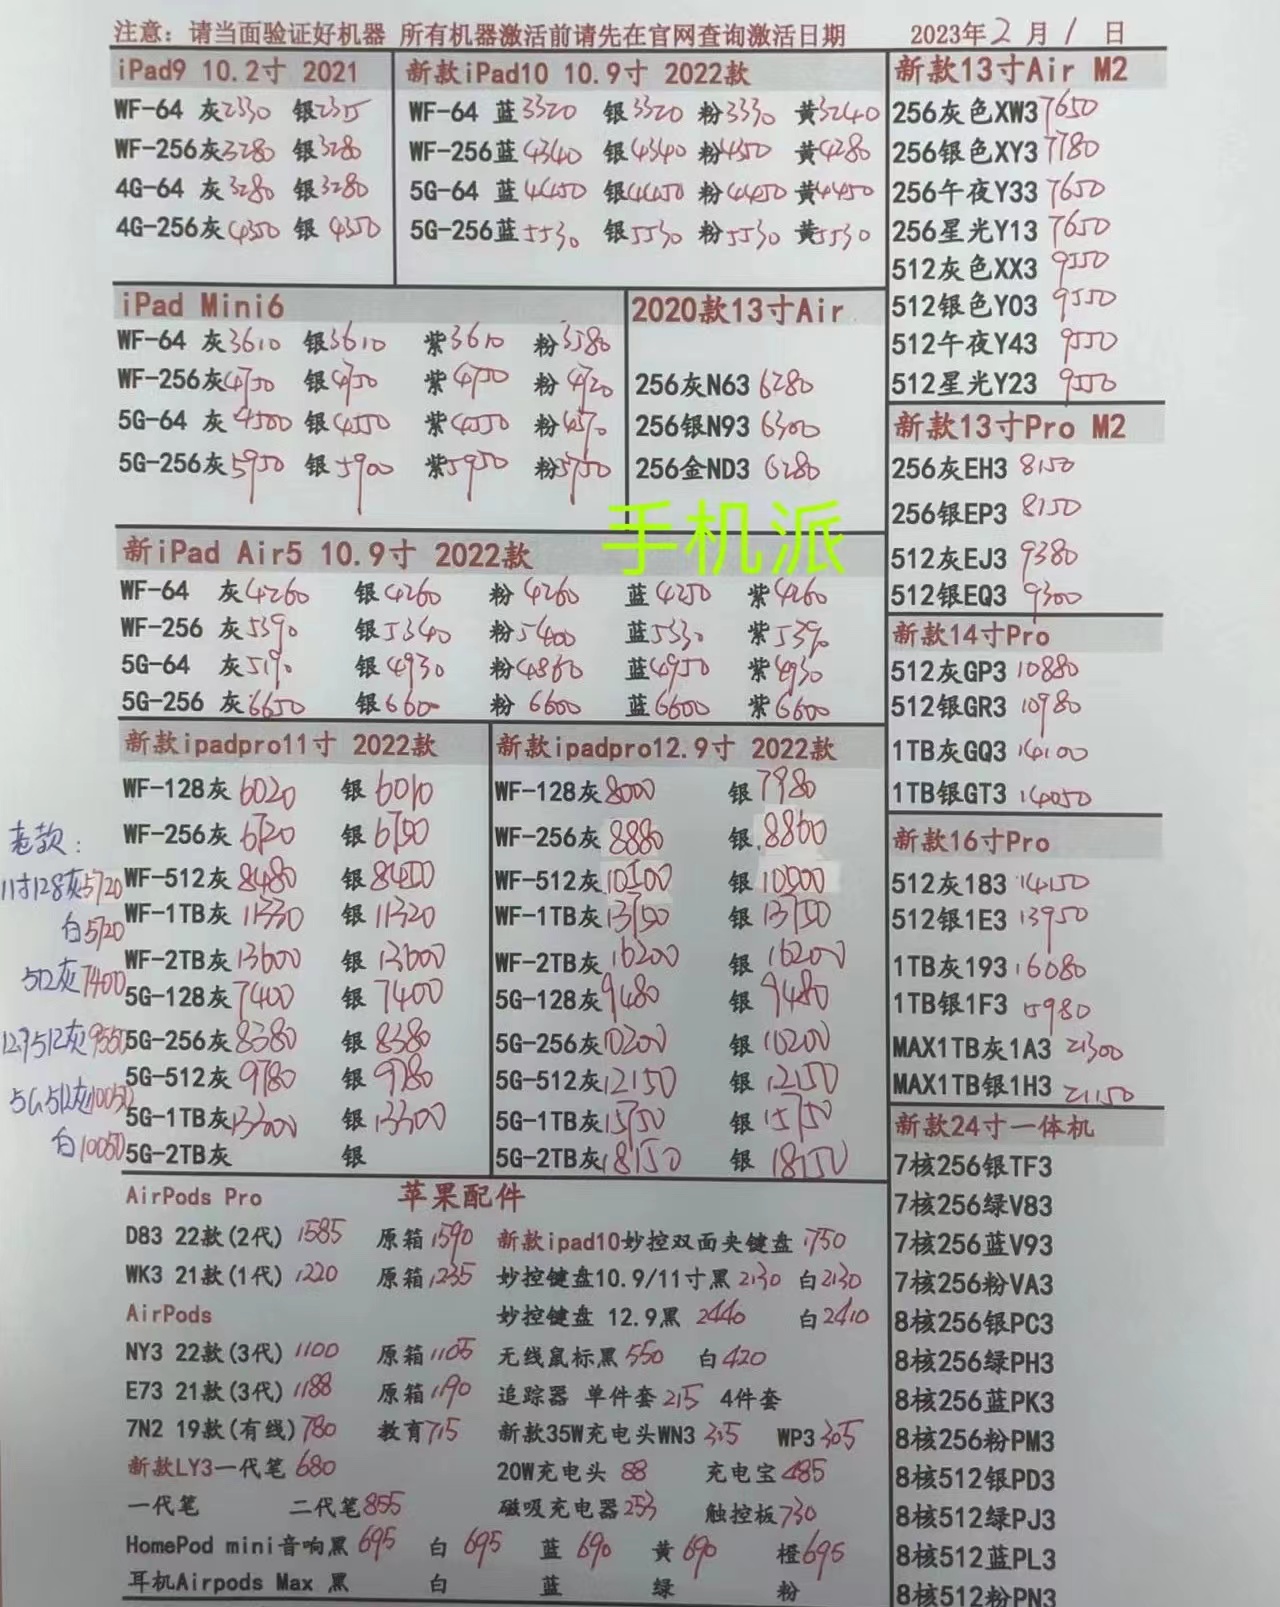 注意：请当面验证好机器 所有机器激活前请先在官网查询激活日期 2023年2月1日
iPad9 10.2寸 2021
WF-64 灰2330 银2315
WF-256灰3280 银3280
4G-64 灰3280 银3280
4G-256灰4350 银4350
新款iPad10 10.9寸 2022款
WF-64 蓝3320 银3320 粉3330 黄3240
WF-256蓝4340 银4340 粉4350 黄4280
5G-64 蓝4450 银4450 粉4450 黄4450
5G-256蓝5530 银5530 粉5530 黄5530
iPad Mini6
WF-64 灰3610 银3610 紫3610 粉3580
WF-256灰4750 银4750 紫4750 粉4720
5G-64 灰4500 银4550 紫4550 粉4570
5G-256灰5950 银5900 紫5950 粉5750
2020款13寸Air
256灰N63 6280
256银N93 6300
256金ND3 6280
手机派
新iPad Air5 10.9寸 2022款
WF-64 灰4260 银4260 粉4260 蓝4250 紫4260
WF-256 灰5390 银5340 粉5400 蓝5330 紫5390
5G-64 灰5190 银4930 粉4860 蓝4950 紫4930
5G-256 灰6650 银6600 粉6600 蓝6600 紫6600
新款ipadpro11寸 2022款
WF-128灰6020 银6010
WF-256灰6720 银6750
WF-512灰8480 银8450
WF-1TB灰11330 银11320
WF-2TB灰13600 银13600
5G-128灰7400 银7400
5G-256灰8380 银8380
5G-512灰9780 银9780
5G-1TB灰13300 银13300
5G-2TB灰 银
老款：
11寸128灰5720
白5720
512灰7400
12.9512灰9550
5G512灰10050
白10050
新款ipadpro12.9寸 2022款
WF-128灰8000 银7980
WF-256灰8880 银8860
WF-512灰10500 银10500
WF-1TB灰13750 银13750
WF-2TB灰16200 银16200
5G-128灰9480 银9480
5G-256灰10200 银10200
5G-512灰12150 银12150
5G-1TB灰15750 银15750
5G-2TB灰18150 银18150
苹果配件
AirPods Pro
D83 22款(2代) 1585 原箱1590
WK3 21款(1代) 1220 原箱1235
AirPods
NY3 22款(3代) 1100 原箱1105
E73 21款(3代) 1188 原箱1190
7N2 19款(有线)780 教育715
新款LY3一代笔 680
一代笔 二代笔855
新款ipad10妙控双面夹键盘 1750
妙控键盘10.9/11寸黑2130 白2130
妙控键盘 12.9黑 2440 白2410
无线鼠标黑550 白420
追踪器 单件套215 4件套
新款35W充电头WN3 315 WP3 305
20W充电头 88 充电宝485
磁吸充电器253 触控板730
HomePod mini音响黑695 白 695 蓝 690 黄690 橙695
耳机Airpods Max 黑 白 蓝 绿 粉
新款13寸Air M2
256灰色XW3 7650
256银色XY3 7780
256午夜Y33 7650
256星光Y13 7650
512灰色XX3 9550
512银色Y03 9550
512午夜Y43 9550
512星光Y23 9550
新款13寸Pro M2
256灰EH3 8150
256银EP3 8150
512灰EJ3 9380
512银EQ3 9300
新款14寸Pro
512灰GP3 10880
512银GR3 10980
1TB灰GQ3 14100
1TB银GT3 14050
新款16寸Pro
512灰183 14150
512银1E3 13950
1TB灰193 16080
1TB银1F3 15980
MAX1TB灰1A3 21300
MAX1TB银1H3 21150
新款24寸一体机
7核256银TF3
7核256绿V83
7核256蓝V93
7核256粉VA3
8核256银PC3
8核256绿PH3
8核256蓝PK3
8核256粉PM3
8核512银PD3
8核512绿PJ3
8核512蓝PL3
8核512粉PN3